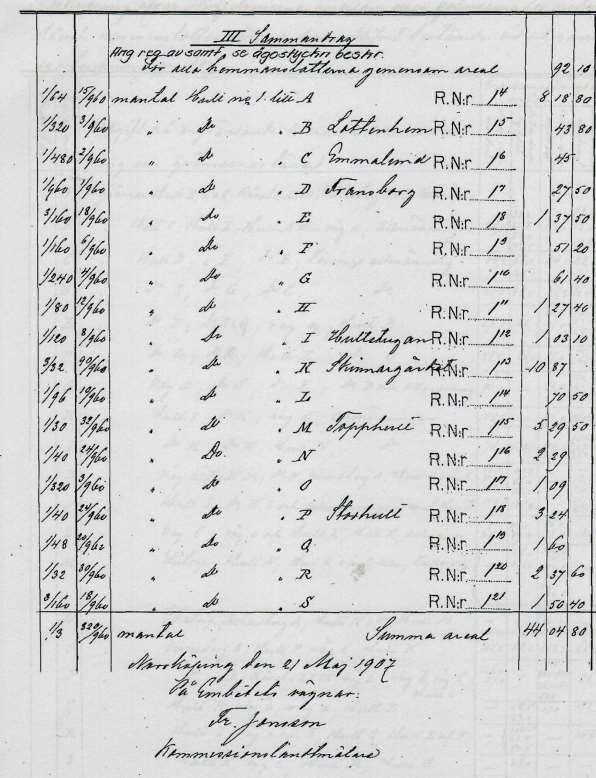 III Sammandrag
Ang reg. av samf., se ägostyckn. beskr.
För alla hemmanslotterna gemensam areal 92 10
1/64 15/960 mantal Hult No 1 litt A R.N:r 1⁴ 8 18 80
1/320 3/960 " do " B Lottenhem R.N:r 1⁵ 43 80
1/480 2/960 " do " C Emmalund R.N:r 1⁶ 45
1/960 1/960 " do " D Fransborg R.N:r 1⁷ 27 50
3/160 18/960 " do " E R.N:r 1⁸ 1 37 50
1/160 6/960 " do " F R.N:r 1⁹ 51 20
1/240 4/960 " do " G R.N:r 1¹⁰ 61 40
1/80 12/960 " do " H R.N:r 1¹¹ 1 27 40
1/120 8/960 " do " I Hultstugan R.N:r 1¹² 1 03 10
3/32 90/960 " do " K Skinnargärdet R.N:r 1¹³ 10 87
1/96 10/960 " do " L R.N:r 1¹⁴ 70 50
1/30 32/960 " do " M Topphult R.N:r 1¹⁵ 5 29 50
1/40 24/960 " Do. " N R.N:r 1¹⁶ 2 29
1/320 3/960 " do " O R.N:r 1¹⁷ 1 09
1/40 24/960 " do " P Storhult R.N:r 1¹⁸ 3 24
1/48 20/960 " do " Q R.N:r 1¹⁹ 1 60
1/32 30/960 " do " R R.N:r 1²⁰ 2 37 60
3/160 18/960 " do " S R.N:r 1²¹ 1 50 40
1/3 320/960 mantal Summa areal 44 04 80
Norrköping den 21 Maj 1907
På Embetets vägnar:
Fr. Jonsson
Kommissionslandtmätare